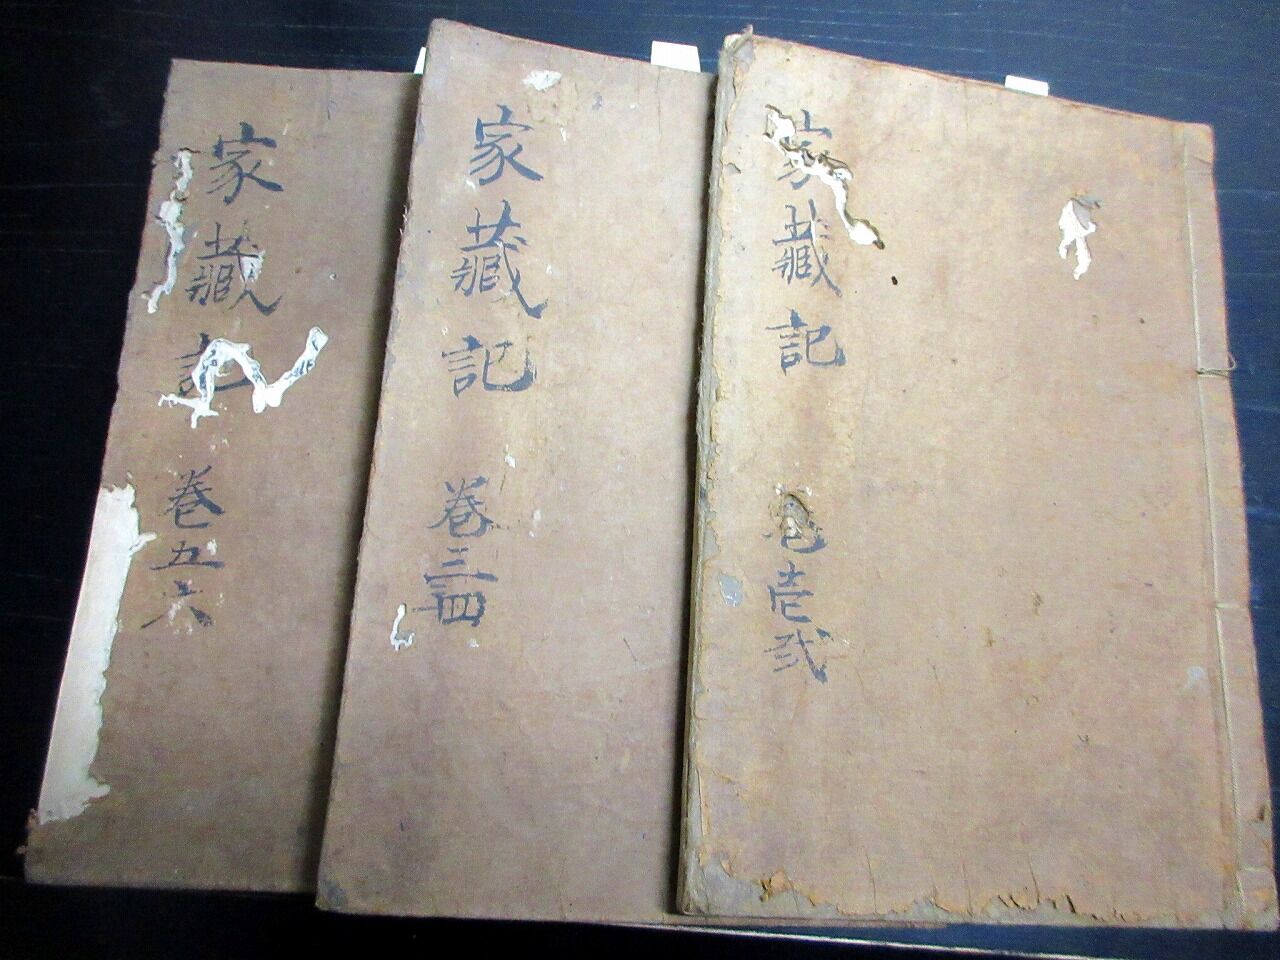 家藏記 巻壱弐
家藏記 巻三四
家藏記 巻五六